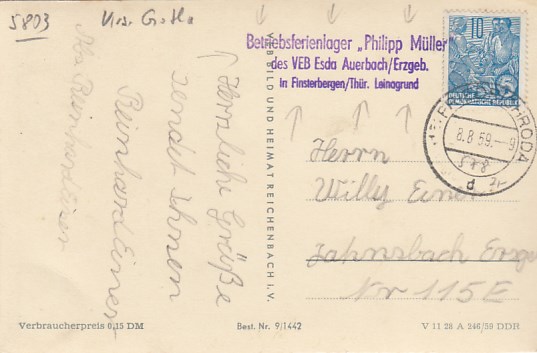 5803
Krs. Gotha
Herzliche Grüße
sendet Ihnen
Reinhard Einer
Betriebsferienlager „Philipp Müller"
des VEB Esda Auerbach/Erzgeb.
in Finsterbergen/Thür. Leinagrund
10
DEUTSCHE
DEMOKRATISCHE REPUBLIK
8.8.59.-9
d
Herrn
Willy Einer
Jahnsbach Erzgeb
Nr 115E
VEB BILD UND HEIMAT REICHENBACH I. V.
Verbraucherpreis 0,15 DM
Best. Nr. 9/1442
V 11 28 A 246/59 DDR